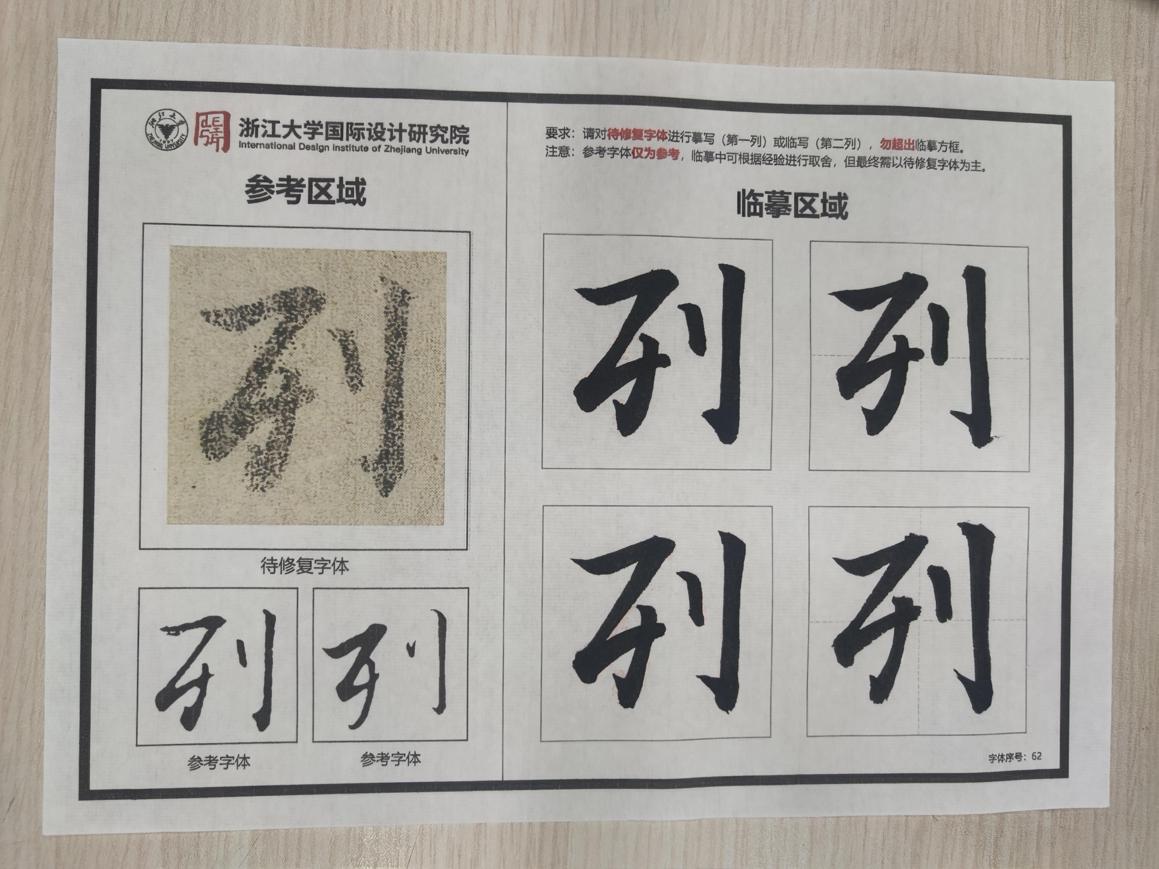 浙江大学国际设计研究院
International Design Institute of Zhejiang University
参考区域
列
待修复字体
列
参考字体
列
参考字体
要求：请对待修复字体进行摹写（第一列）或临写（第二列），勿超出临摹方框。
注意：参考字体仅为参考，临摹中可根据经验进行取舍，但最终需以待修复字体为主。
临摹区域
列 列
列 列
字体序号：62